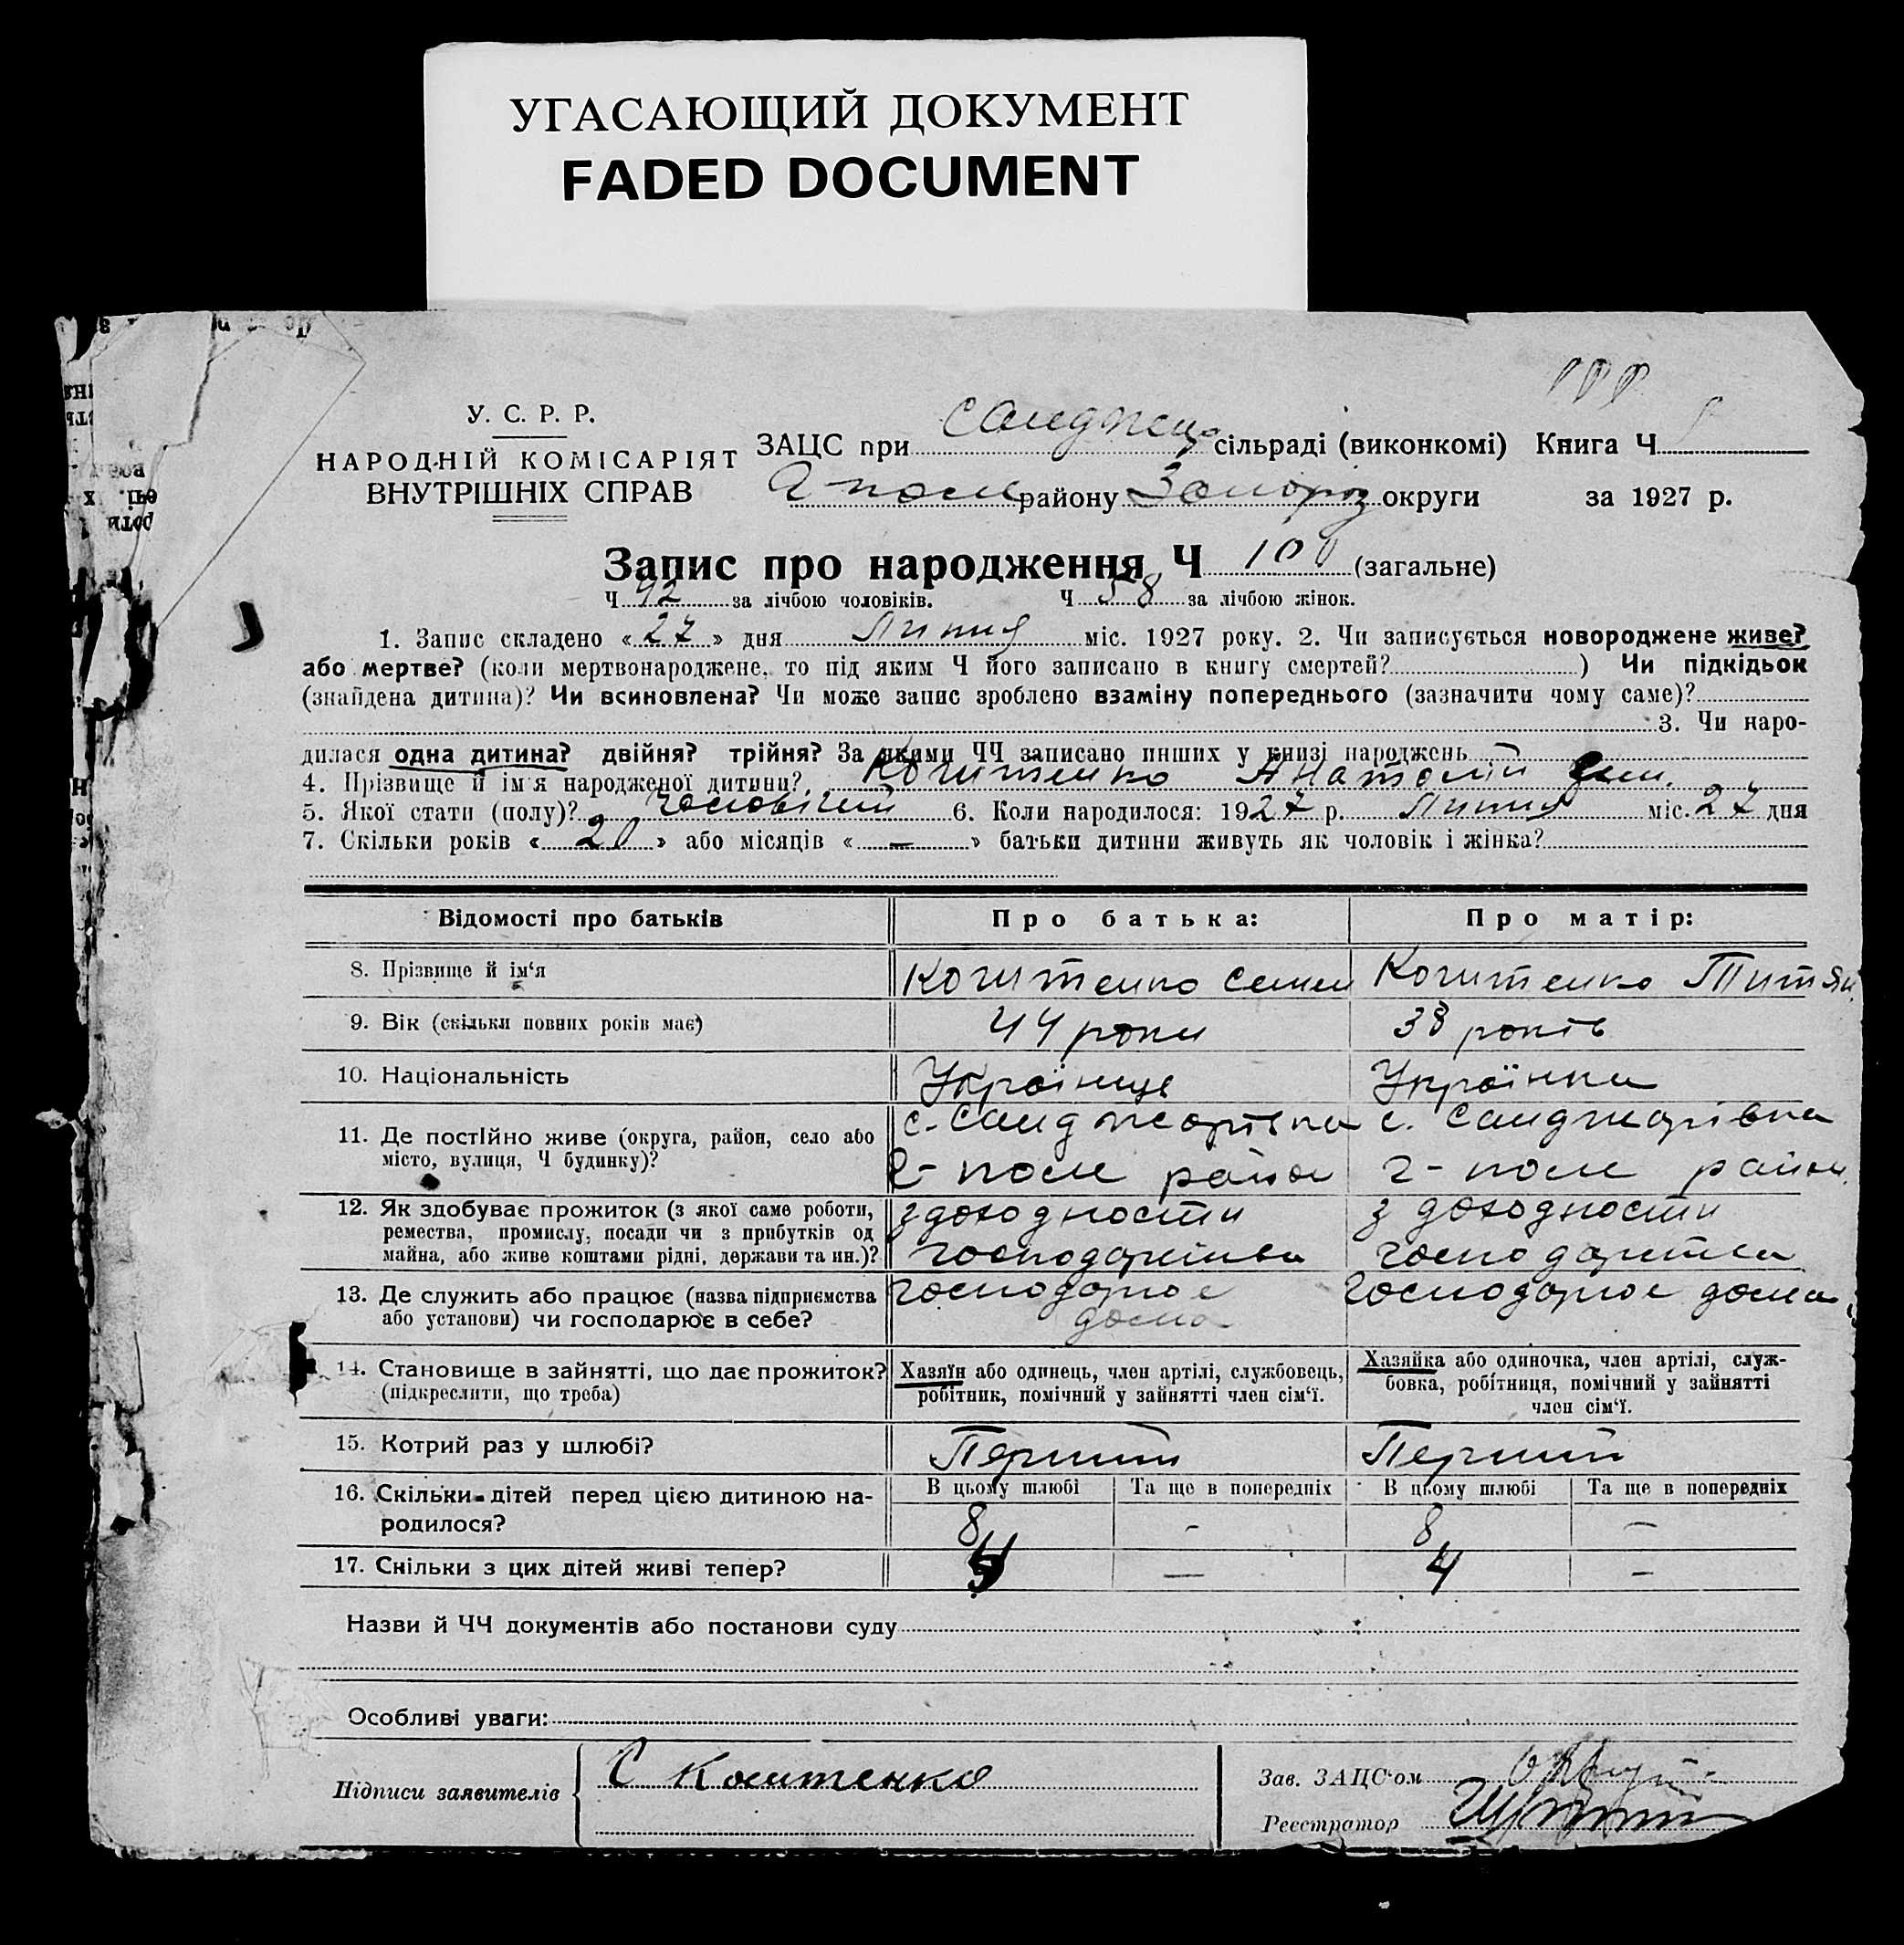 УГАСАЮЩИЙ ДОКУМЕНТ
FADED DOCUMENT
У. С. Р. Р.
НАРОДНІЙ КОМІСАРІЯТ
ВНУТРІШНІХ СПРАВ
ЗАЦС при Санджар сільраді (виконкомі) Книга Ч
Г поле району Запоріз округи за 1927 р.
Запис про народження Ч 100 (загальне)
Ч 92 за лічбою чоловіків. Ч 58 за лічбою жінок.
1. Запис складено «27» дня Липня міс. 1927 року. 2. Чи записується новороджене живе?
або мертве? (коли мертвонароджене, то під яким Ч його записано в книгу смертей? ) Чи підкідьок
(знайдена дитина)? Чи всиновлена? Чи може запис зроблено взаміну попереднього (зазначити чому саме)?
3. Чи наро-
дилася одна дитина? двійня? трійня? За якими ЧЧ записано инших у книзі народжень
4. Прізвище й ім'я народженої дитини? Анатолій Сем.
5. Якої стати (полу)? чоловічий 6. Коли народилося: 1927 р. Липня міс. 27 дня
7. Скільки років «20» або місяців «—» батьки дитини живуть як чоловік і жінка?
Відомості про батьків Про батька: Про матір:
8. Прізвище й ім'я Семен
9. Вік (скільки повних років має) 44 роки 38 років
10. Національність Українець Українка
11. Де постійно живе (округа, район, село або
місто, вулиця, Ч будинку)?
с. Санджарівка с. Санджарівка
Г- поле район Г- поле район
12. Як здобуває прожиток (з якої саме роботи,
ремества, промислу, посади чи з прибутків од
майна, або живе коштами рідні, держави та ин.)?
з доходности з доходности
господарства господарства
13. Де служить або працює (назва підприємства
або установи) чи господарює в себе?
господарює дома господарює дома
14. Становище в зайнятті, що дає прожиток?
(підкреслити, що треба)
Хазяїн або одинець, член артілі, службовець,
робітник, помічний у зайнятті член сім'ї.
Хазяйка або одиночка, член артілі, служ-
бовка, робітниця, помічний у зайнятті
член сім'ї.
15. Котрий раз у шлюбі? Перший Перший
16. Скільки дітей перед цією дитиною на-
родилося?
В цьому шлюбі Та ще в попередніх В цьому шлюбі Та ще в попередніх
8 - 8 —
17. Скільки з цих дітей живі тепер? 4 — 4 —
Назви й ЧЧ документів або постанови суду
Особливі уваги:
Підписи заявителів С
Зав. ЗАЦС'ом
Реєстратор